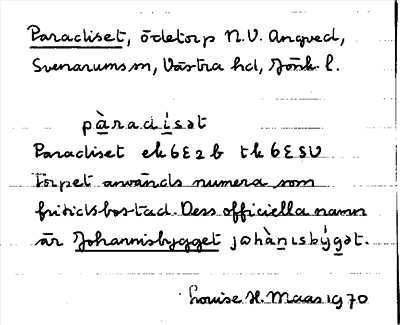 Paradiset, ödetorp N.V. Angved,
Svenarums sn, Västra hd, Jönk. l.
pàradísət
Paradiset ek 6E2b tk 6E5U
Torpet används numera som
fritidsbostad. Dess officiella namn
är Johannisbygget johànısbýgət.
Louise H. Maas 1970